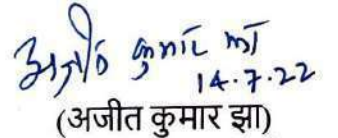 अजीत कुमार झा
14.7.22
(अजीत कुमार झा)